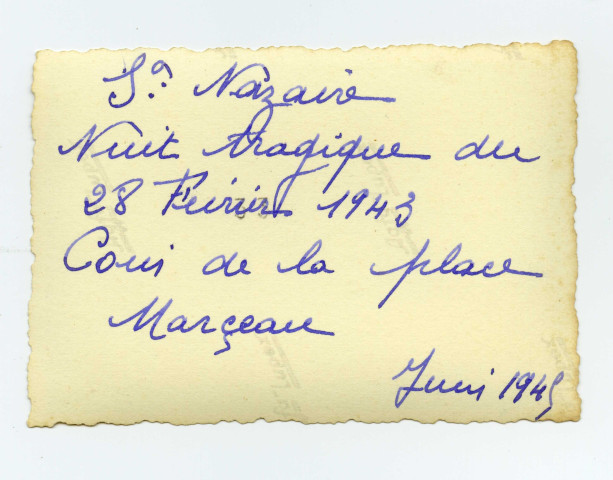 St Nazaire
Nuit tragique du
28 Février 1943
Coin de la place
Marçeau
Juin 1945